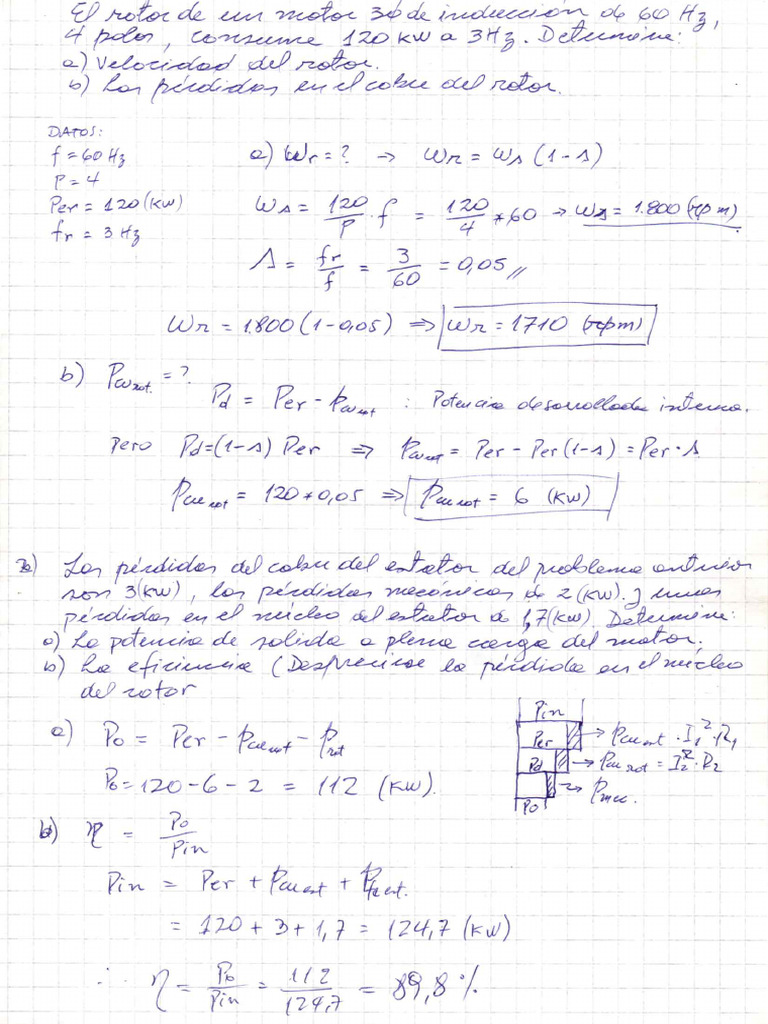 El rotor de un motor 3φ de inducción de 60 Hz,
4 polos, consume 120 kW a 3Hz. Determine:
a) Velocidad del rotor.
b) Las pérdidas en el cobre del rotor.
DATOS:
f = 60 Hz
P = 4
Per = 120 (kW)
fr = 3 Hz
a) Wr = ? → Wr = Ws (1 - s)
Ws = 120/P · f = 120/4 * 60 → Ws = 1.800 (rpm)
s = fr/f = 3/60 = 0,05 //
Wr = 1.800 (1 - 0,05) ⇒ Wr = 1710 (rpm)
b) Pcu rot. = ?
Pd = Per - Pcu rot : Potencia desarrollada interna.
Pero Pd = (1 - s) Per ⇒ Pcu rot = Per - Per (1 - s) = Per · s
Pcu rot = 120 * 0,05 ⇒ Pcu rot = 6 (kW)
Las pérdidas del cobre del estator del problema anterior
son 3 (kW), las pérdidas mecánicas de 2 (kW) y unas
pérdidas en el núcleo del estator de 1,7 (kW). Determine:
a) La potencia de salida a plena carga del motor.
b) La eficiencia (Despreciar la pérdida en el núcleo
del rotor
a) Po = Per - Pcu rot - Prot
Po = 120 - 6 - 2 = 112 (kW).
Pin
Per → Pcu est · I₁² · R₁
Pd → Pcu rot = I₂² · R₂
Po → Pmec.
b) η = Po/Pin
Pin = Per + Pcu est + Pfe est.
= 120 + 3 + 1,7 = 124,7 (kW)
∴ η = Po/Pin = 112/124,7 = 89,8 %